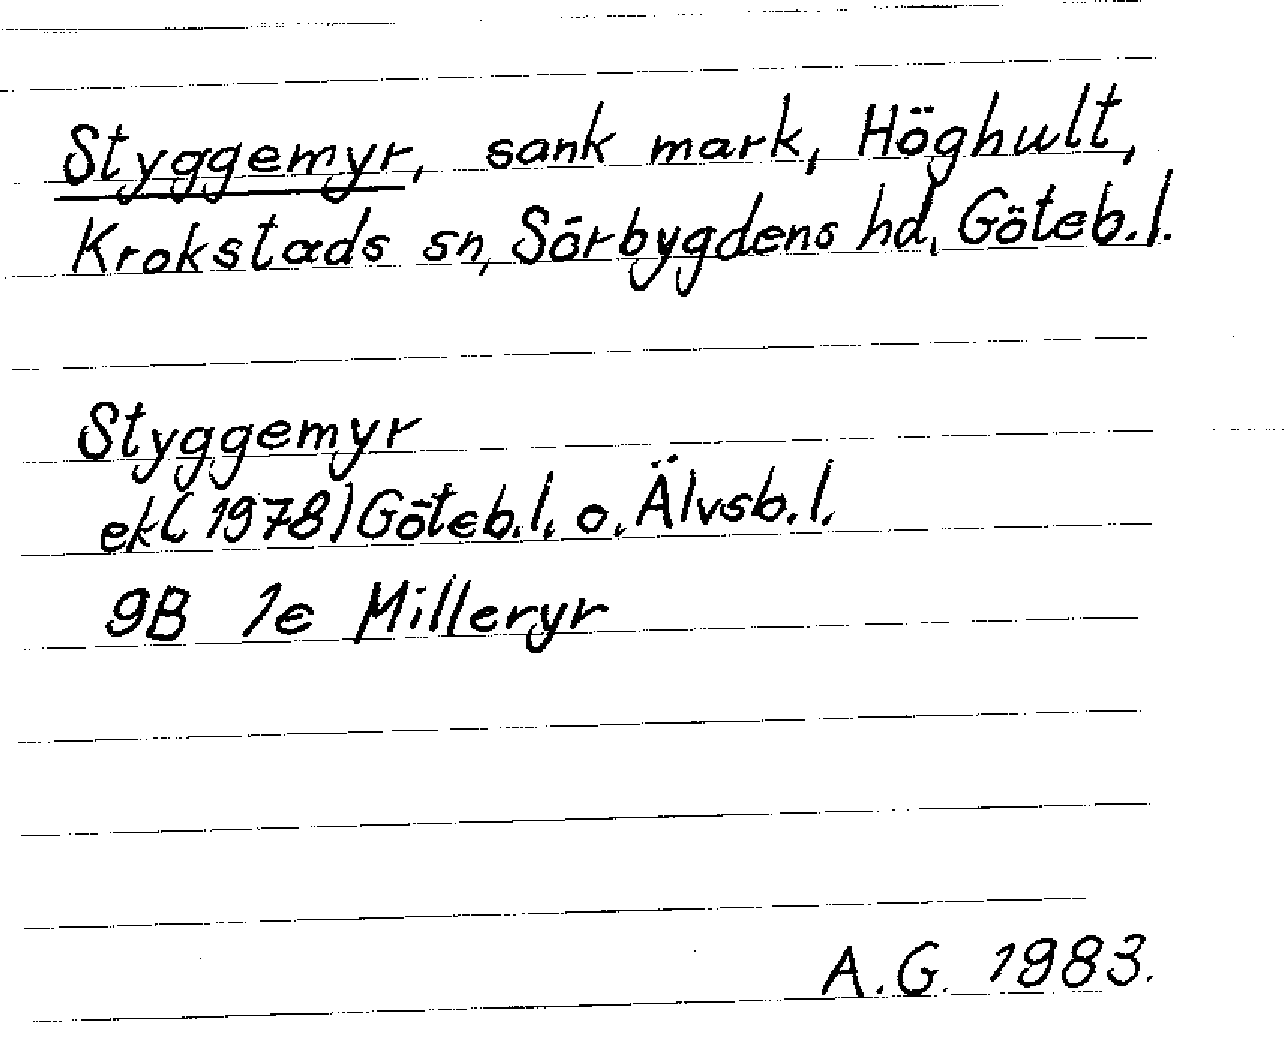 Styggemyr, sank mark, Höghult,
Krokstads sn, Sörbygdens hd, Göteb.l.
Styggemyr
ek(1978) Göteb.l. o. Älvsb.l.
9B 1e Milleryr
A.G. 1983.